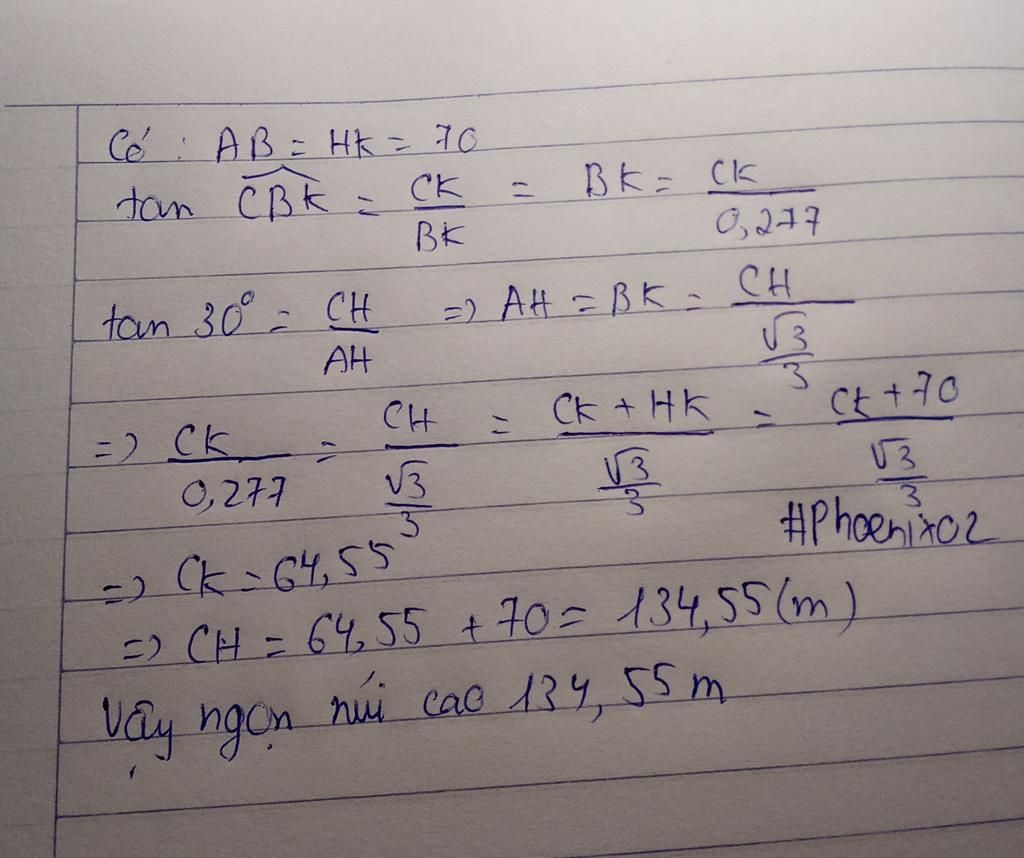 Có : AB = HK = 70
tan \widehat{CBK} = \frac{CK}{BK} = BK = \frac{CK}{0,277}
tan 30° = \frac{CH}{AH} => AH = BK = \frac{CH}{\frac{√3}{3}}
=> \frac{CK}{0,277} = \frac{CH}{\frac{√3}{3}} = \frac{CK + HK}{\frac{√3}{3}} = \frac{CK + 70}{\frac{√3}{3}}
#Phoenix02
=> CK = 64,55
=> CH = 64,55 + 70 = 134,55 (m)
Vậy ngọn núi cao 134,55 m